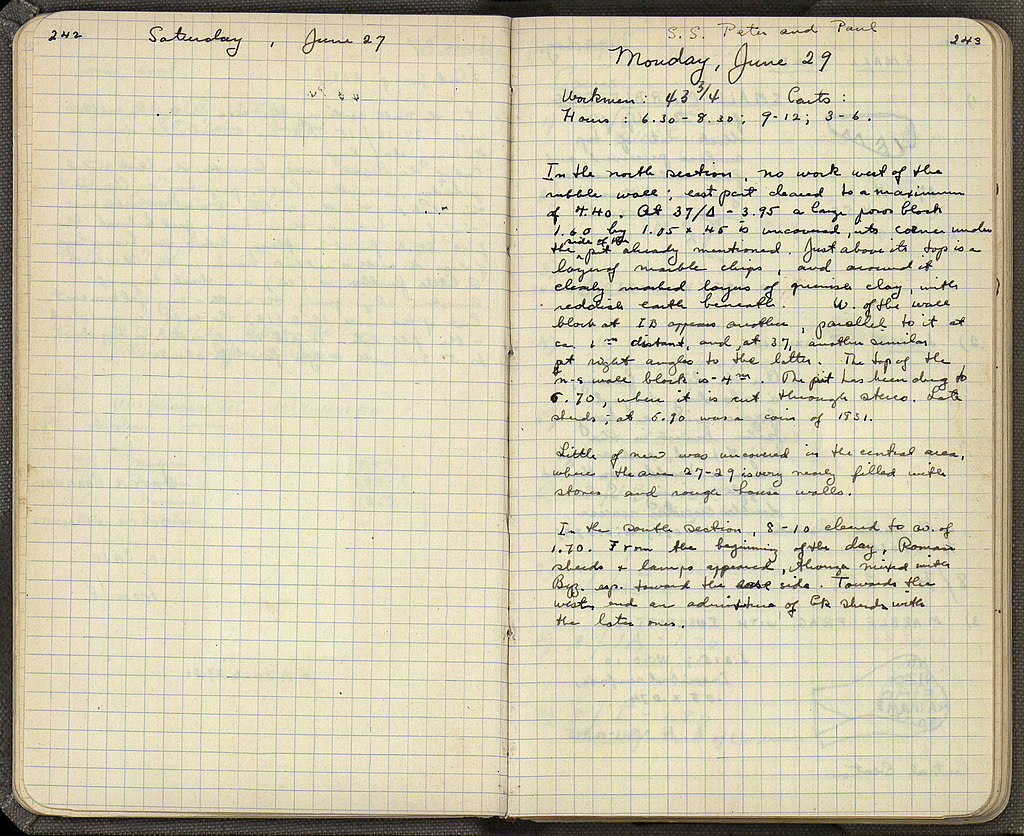 242
Saturday, June 27
S.S. Peter and Paul
243
Monday, June 29
Workmen: 43 3/4 Carts:
Hours: 6.30-8.30; 9-12; 3-6.
In the north section, no work west of the
rubble wall; east part cleared to a maximum
of 4.40. At 37/Δ - 3.95 a large poros block
1.60 by 1.05 x .45 is uncovered, its corner under
the side of the pit already mentioned. Just above its top is a
layer of marble chips, and around it
clearly marked layers of greenish clay, with
reddish earth beneath. W. of the wall
block at ΙΔ appears another, parallel to it at
ca. 1 m distant, and, at 37, another similar
at right angles to the latter. The top of the
n-s wall block is -4 m. The pit has been dug to
6.70, where it is cut through stereo. Late
sherds; at 6.90 was a coin of 1831.
Little of new was uncovered in the central area,
where the area 27-29 is very nearly filled with
stones and rough house walls.
In the south section, 8-10 cleared to av. of
1.70. From the beginning of the day, Roman
sherds & lamps appeared, though mixed with
Byz. esp. toward the side. Towards the
west end an admixture of Gk sherds with
the later ones.